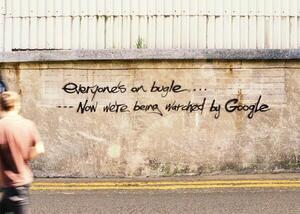 Everyone's on bugle....
--- Now we're being watched by Google